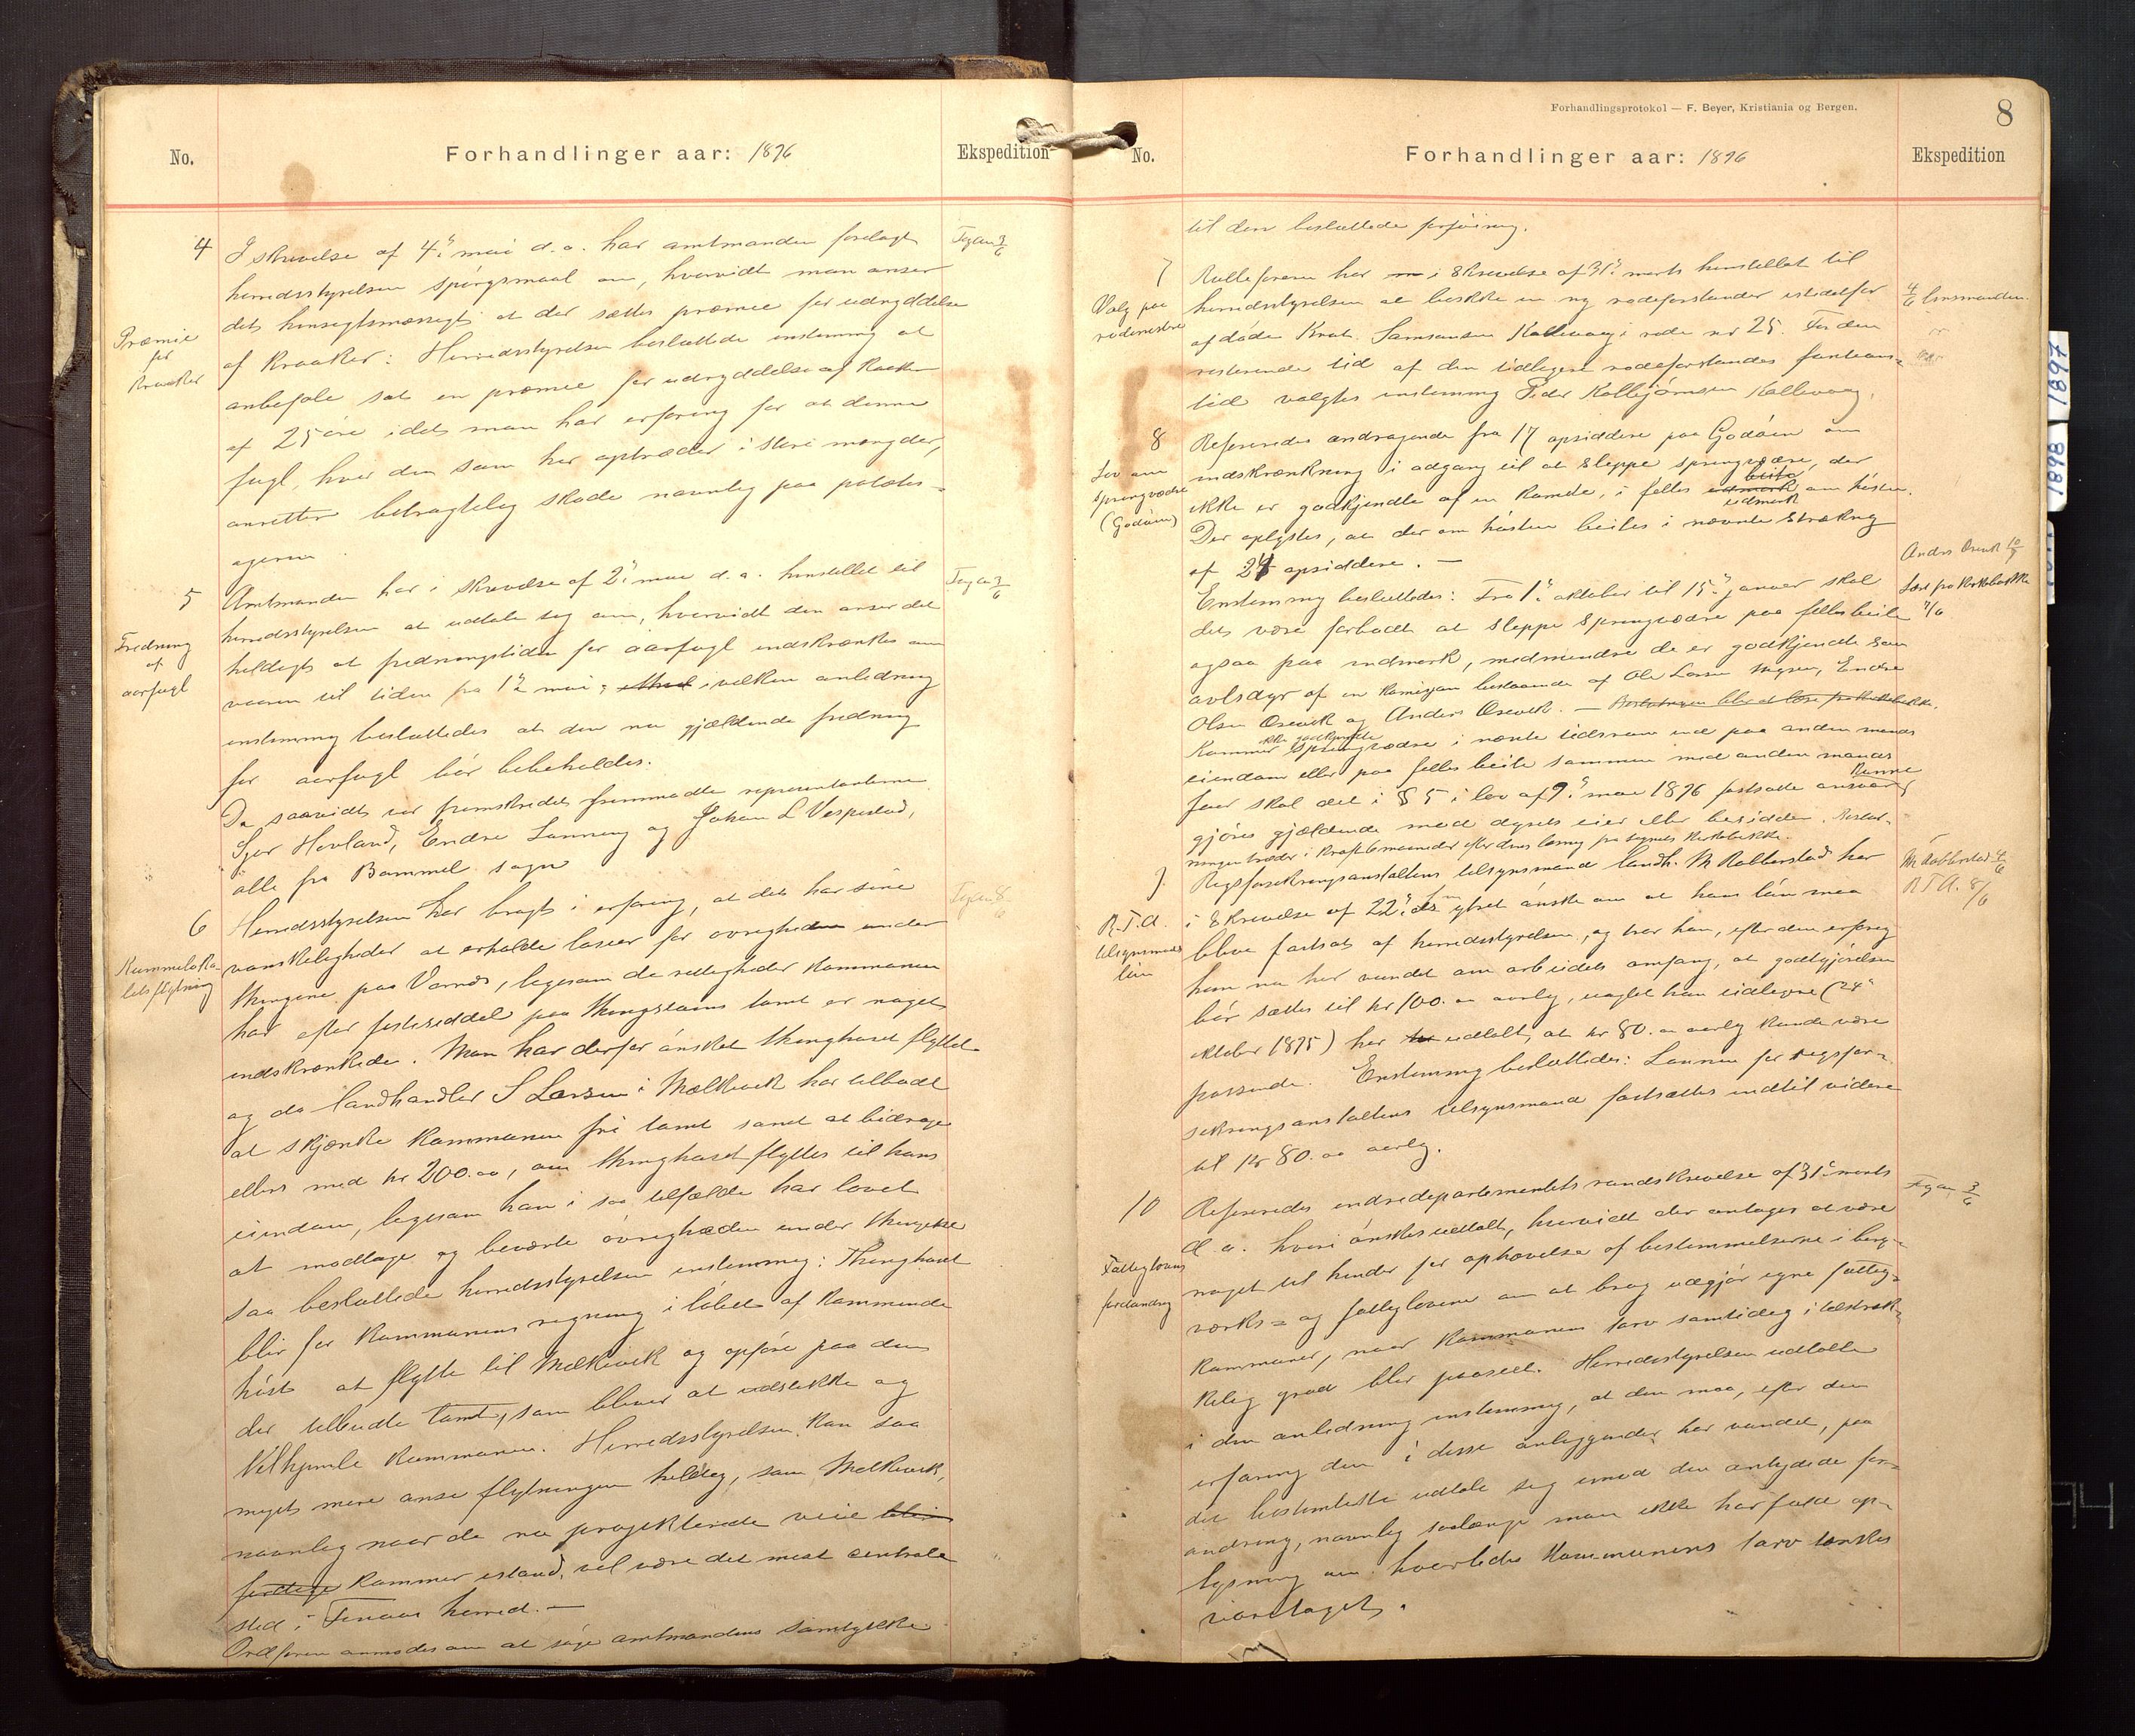 No.
Forhandlinger aar: 1896
Ekspedition
4
I skrivelse af 4de mai d.a. har amtmanden forelagt
herredsstyrelsen spörgsmaal om, hvorvidt man anser
det hensigtsmæssigt at der sættes præmie for udryddelse
af Kraaker: Herredsstyrelsen besluttede enstemmig at
anbefale sat en præmie for udryddelse af Kraaker
af 25 öre idet man har erfaring for at denne
fugl, hvor den som her optræder i store mængder,
anretter betragtelig skade navnlig paa potetes-
agerne
Præmie
for
Kraaker
5
Amtmanden har i skrivelse af 2den mai d.a. henstillet til
herredsstyrelsen at udtale sig om, hvorvidt den anser det
heldigt at fredningstiden for aarfugl indskrænkes om
vaaren til tiden fra 1ste mai; i hvilken anledning
enstemmig besluttedes at den nu gjældende fredning
for aarfugl bör bibeholdes.
Fredning
af
aarfugl
Da saavidt var fremskredet fremmødte repræsentanterne
Sjur Hovland, Endre Lunning og Johan L Vespestad,
alle fra Bømmel sogn
6
Herredsstyrelsen har bragt i erfaring, at det har sine
vanskeligheder at erholde losier for övrigheden under
thingene paa Vornes, ligesom de rettigheder kommunen
har efter festeseddel paa thingstuens tomt er noget
indskrænkede. Man har derfor önsket thinghuset flyttet
og da landhandler S Larsen i Mælkevik har tilbudt
at skjænke kommunen fri tomt samt at bidrage
ellers med kr 200.00, om thinghuset flyttes til hans
eiendom, ligesom han i saa tilfælde har lovet
at modtage og beværte övrigheden under thingene
saa besluttede herredsstyrelsen enstemmig: Thinghuset
blir for kommunens regning i löbet af kommende
höst at flytte til Mælkevik og opföre paa den
der tilbudte tomt, som bliver at udstikke og
tilhjemle kommunen. Herredsstyrelsen kan saa
meget mere anse flytningen heldig, som Mælkevik,
navnlig naar de nu projekterede veie blir
færdige kommer istand, vil være det mest centrale
sted i Finaas herred. —
Ordföreren anmodes om at söge amtmandens samtykke
No.
Forhandlingsprotokol — F. Beyer, Kristiania og Bergen.
8
Forhandlinger aar: 1896
Ekspedition
til den besluttede forföining.
7
Valg paa
rodemester
Rulleföreren har i skrivelse af 31te marts henstillet til
herredsstyrelsen at beskikke en ny rodeforstander istedetfor
afdöde Knut Samsonsen Kallevaag i rode nr 25. For den
resterende tid af den tidligere rodeforstanders funktions-
tid valgtes enstemmig Peder Kolbjörnsen Kallevaag.
4/6 lensmanden
8
Lov om
springvædre
(Godöen)
Refereredes andragende fra 17 opsiddere paa Godöen om
indskrænkning i adgang til at sleppe springvædre, der
ikke er godkjendte af en komite, i felles udmark beite om hösten.
udmark
Der oplystes, at der om hösten beites i nævnte strækning
af 24 opsiddere. —
Enstemmig besluttedes: Fra 1ste oktober til 15de januar skal
det være forbudt at sleppe springvædre paa fellesbeite
ogsaa paa indmark, medmindre de er godkjendte som
avlsdyr af en komission bestaaende af Ole Larsen Mygsen, Endre
Olsen Osevik og Anders Osevik. —
Kommer ikke godkjendte springvædre i nævnte tidsrum ind paa anden mands
eiendom eller paa felles beite sammen med anden mands
faar skal det i § 5 i lov af 9de mai 1896 fastsatte ansvar kunne
gjöres gjældende mod dyrets eier eller besidder. Beslut-
ningen træder i kraft 6 maaneder efter dens læsning paa sognets kirkebakke.
Anders Osevik 10/7
Læst paa kirkebakke
9
R.T.A.
tilsynsmands
lön
Rigsforsikringsanstaltens tilsynsmand landh. M Robberstad har
i skrivelse af 22de ds ytret önske om at hans lön maa
blive fastsat af herredsstyrelsen, og tror han, efter den erfaring
han nu har vundet om arbeidets omfang, at godtgjörelsen
bör sættes til kr 100.00 aarlig, uagtet han tidligere (24de
oktober 1895) har udtalt, at kr 80.00 aarlig kunde være
passende. Enstemmig besluttedes: Lönnen for rigsfor-
sikringsanstaltens tilsynsmand fastsættes indtil videre
til kr 80.00 aarlig.
M Robberstad 4/6
R T A. 8/6
10
Fattiglovens
forandring
Refereredes indredepartementets rundskrivelse af 31te marts
d.a. hvori önskes udtalt, hvorvidt der antages at være
noget til hinder for ophævelse af bestemmelserne i berg-
værks- og fattiglovene om at brug udgjör egne fattig-
kommuner, naar kommunens tarv samtidig i tilstræk-
kelig grad blir paaseet. Herredsstyrelsen udtalte
i den anledning enstemmig, at den maa, efter den
erfaring den i disse anliggender har vundet, paa
det bestemteste udtale sig imod den antydede for-
andring, navnlig saalænge man ikke har faaet op-
lysning om hvorledes kommunens tarv tænkes
varetaget.